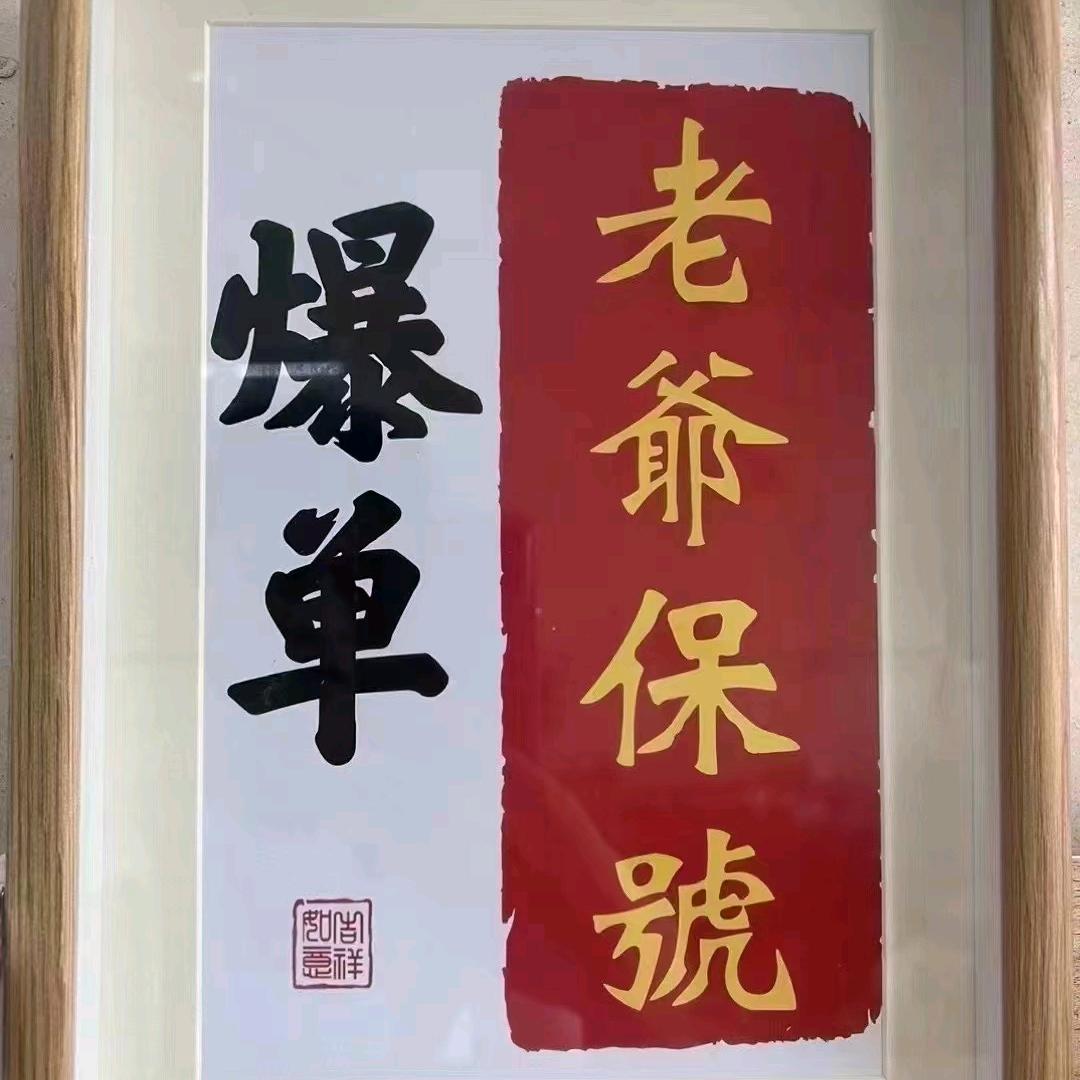 老爺保號
爆单
吉祥如意